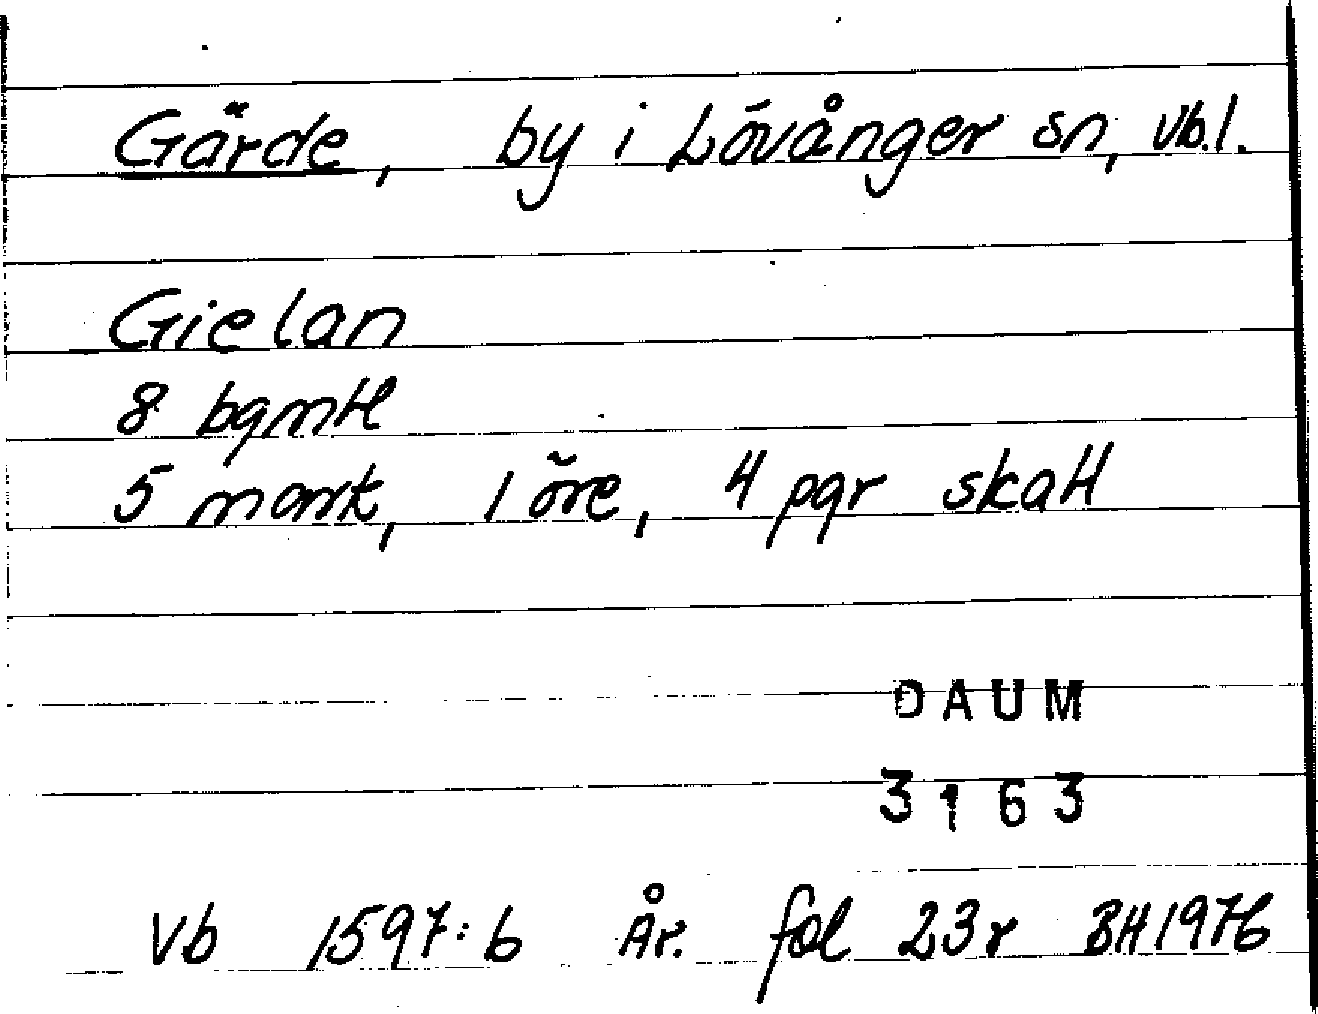 Gärde, by i Lövånger sn, Vb.l.
Gielan
8 bgmtl
5 mark, 1 öre, 4 pgr skatt
DAUM
3163
Vb 1597:6 År. fol 23r BH1976